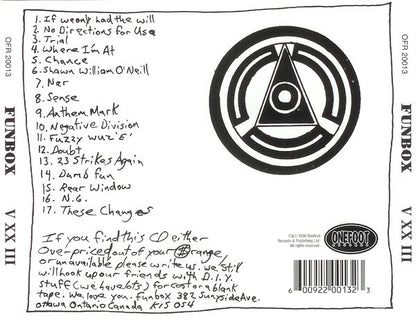 OFR 20013
FUNBOX
V XX III
1. If we only had the will
2. No Directions for Use
3. Trial
4. Where I'm At
5. Chance
6. Shawn William O'Neill
7. Ner
8. Sense
9. Anthem Mark
10. Negative Division
11. Fuzzy wuz'E!
12. Doubt
13. 23 Strikes Again
14. Damb fun
15. Rear Window
16. N.G.
17. These Changes
If you find this CD either
Over-priced out of your $range,
or unavailable please write us. we still
will hook up our friends with D.I.Y.
stuff (we have lots) for cost or a blank
tape. We love you. funbox 382 Sunnyside Ave.
Ottawa Ontario Canada K1S 0S4
℗&© 1996 Onefoot
Records & Publishing Ltd.
All rights reserved.
ONEFOOT
RECORDS
6 00922 00132 3
OFR 20013
FUNBOX
V XX III